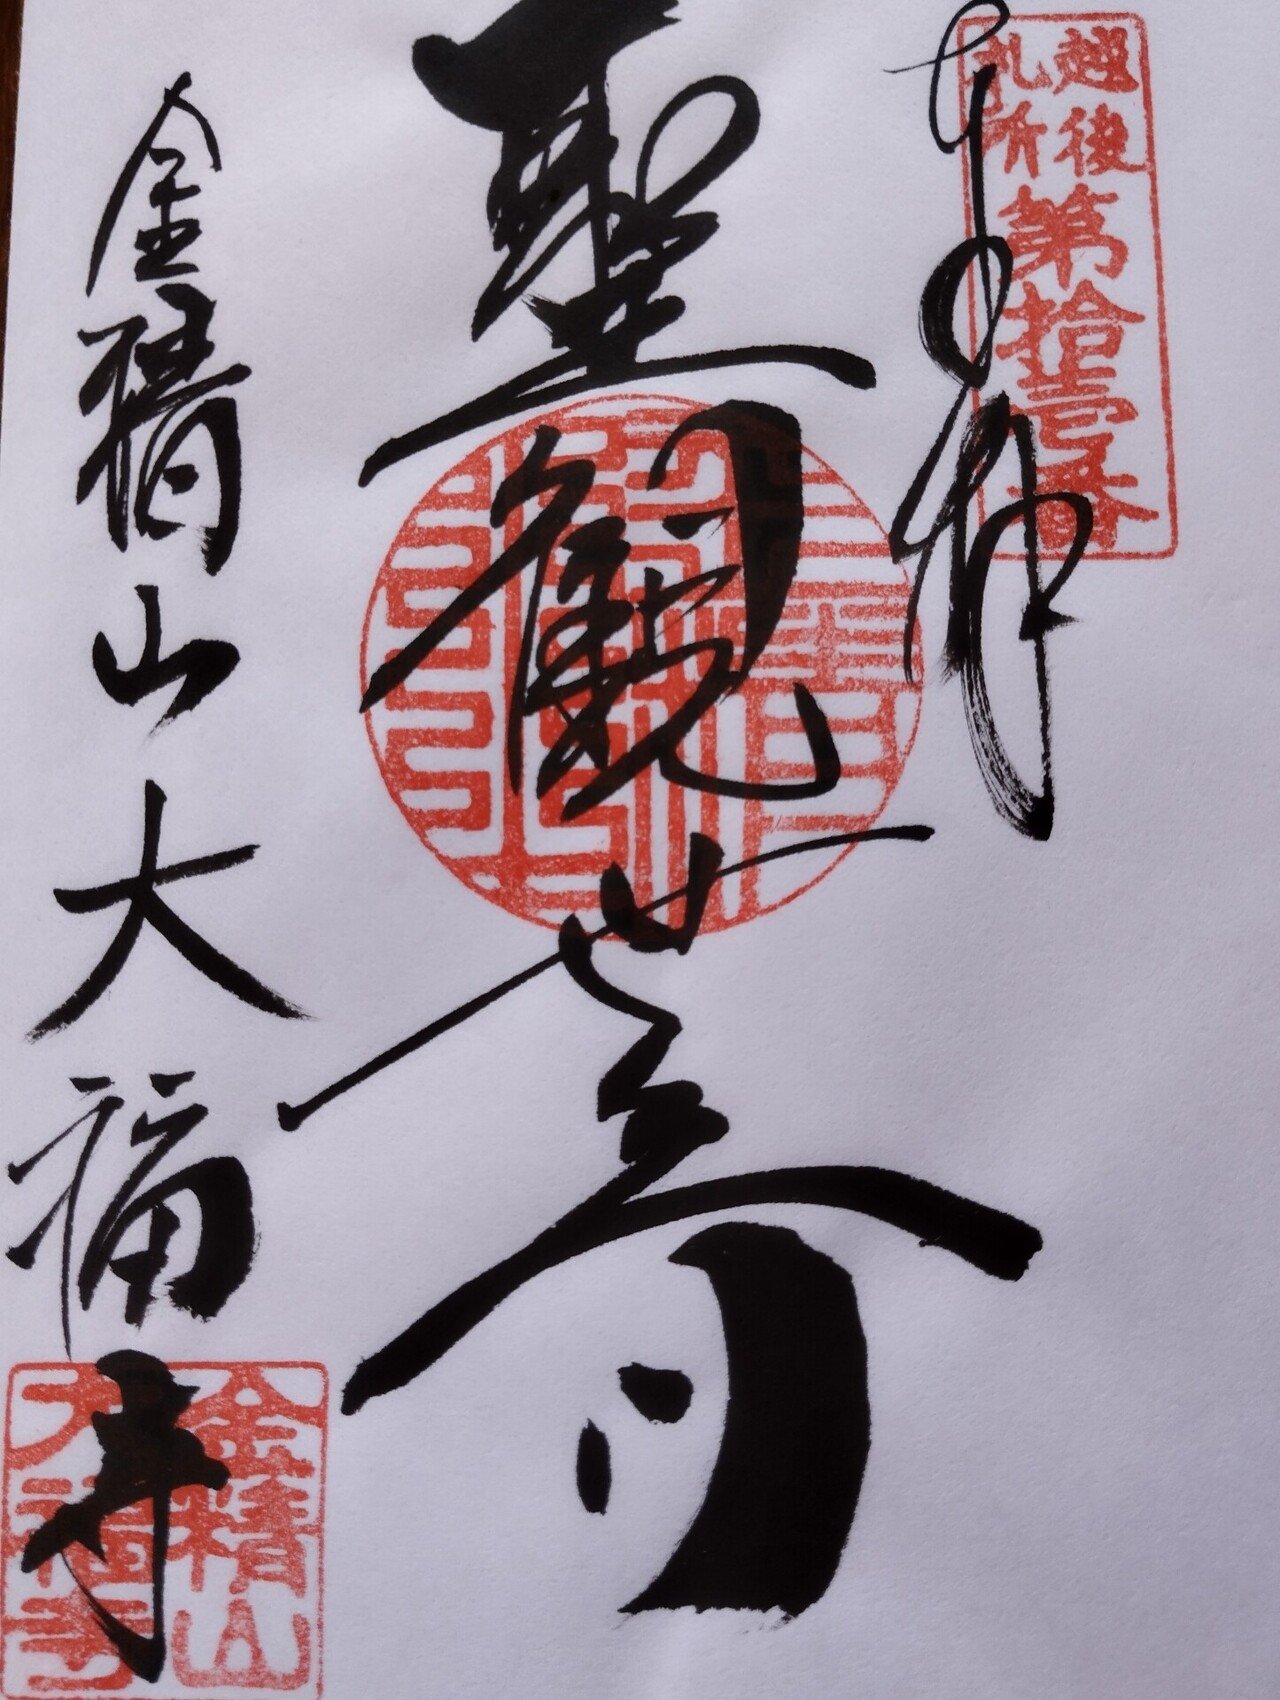 越後
札所
第拾壹番
奉拝
聖観世音
金精山大福寺
金精山
大福寺